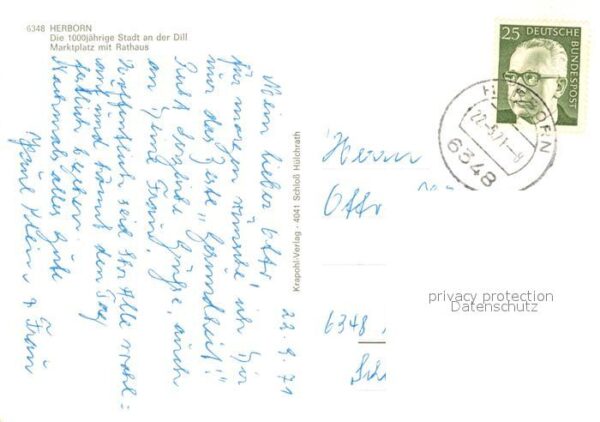 6348 HERBORN
Die 1000jährige Stadt an der Dill
Marktplatz mit Rathaus
22. 9. 71
Mein lieber Otto,
für morgen wünsche ich Dir
nur das Beste „Gesundheit!"
Recht herzliche Grüße, auch
an Deine Frau.
Hoffentlich seid Ihr Alle wohl=
auf und könnt den Tag
bleiben.
Nochmals alles Gute
Klein & Frau
Krapohl-Verlag - 4041 Schloß Hülchrath
25 DEUTSCHE
BUNDESPOST
HERBORN
6348
Herrn
Otto
6348
privacy protection
Datenschutz